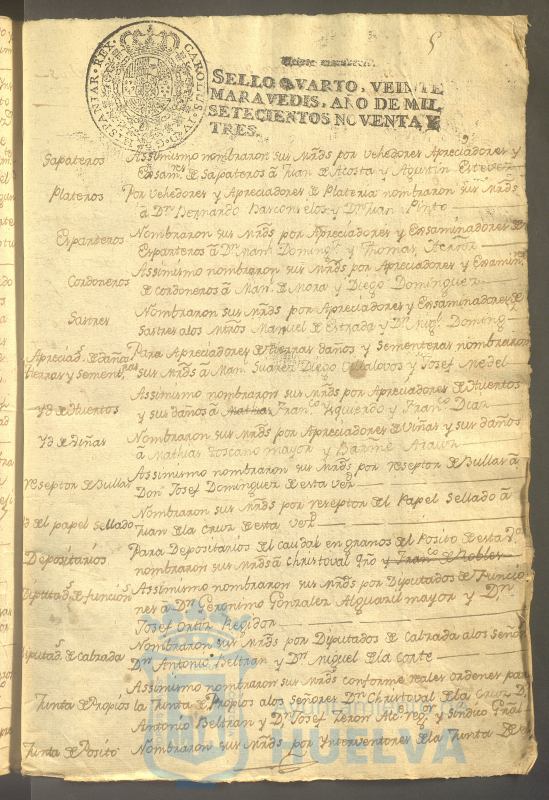 5
CAROLUS IV D G HISPANIAR REX
SELLO QVARTO, VEINTE
MARAVEDIS, AÑO DE MIL
SETECIENTOS NOVENTA Y
TRES.
Sapateros Assimismo nombraron sus Mrds por vehedores Apreciadores y
Exsam.res de Sapateros â Juan de Acosta y Agustin Estevez
Plateros Por vehedores y Apreciadores de Plateria nombraron sus Mrds
â Dn Bernardo Basconselos y Dn Juan Pinto
Esparteros Nombraron sus Mrds por Apreciadores y Exsaminadores de
Esparteros â Dn Man.l Doming.z y Thomas
Cordoneros Assimismo nombraron sus Mrds por Apreciadores y Exsamin.s
de cordoneros â Man.l de Mora y Diego Dominguez
Sastres Nombraron sus Mrds por Apreciadores y Exsaminadores de
Sastres alos Mtros Manuel de Estrada y Dn Mig.l Doming.z
Apreciad.s de daños Para Apreciadores de tierras daños y sementeras nombraron
tierras y sement.ras sus Mrds â Man.l Suarez Diego Villalovos y Josef Medel
Assimismo nombraron sus Mrds por Apreciadores de Huertos
Yd de Huertos y sus daños â Mathias Fran.co Ysquierdo y Fran.co Diaz
Yd de viñas Nombraron sus Mrds por Apreciadores de viñas y sus daños
â Mathias Toscano mayor y Bartme
Assimismo nombraron sus Mrds por reseptor de Bullas â
reseptor de Bullas Don Josef Dominguez de esta vez
Nombraron sus Mrds por reseptor del Papel Sellado â
Yd del papel sellado Juan dela Cruz de esta vez
Depositarios Para Depositarios del caudal en granos del Posito de esta v.a
nombraron sus Mrds â Christoval y Fran.co de Robles
Diputad.s de función Assimismo nombraron sus Mrds por Diputados de Funcio
nes â Dn Geronimo Gonzalez Alguazil mayor y Dn
Josef Ortiz Regidor
Nombraron sus Mrds por Diputados de Calzada alos señor.s
Diputad.s de calzada Dn Antonio Beltran y Dn Miguel dela Corte
Assimismo nombraron sus Mrds conforme reales ordenes para
Junta de Propios la Junta de Propios alos señores Dn Christoval dela Cruz Dn
Antonio Beltran y Dn Josef Teron Alc.e Reg.or y Sindico Gral
Junta de Posito Nombraron sus Mrds por Ynterventores dela Junta de
Ayuntamiento de
HUELVA